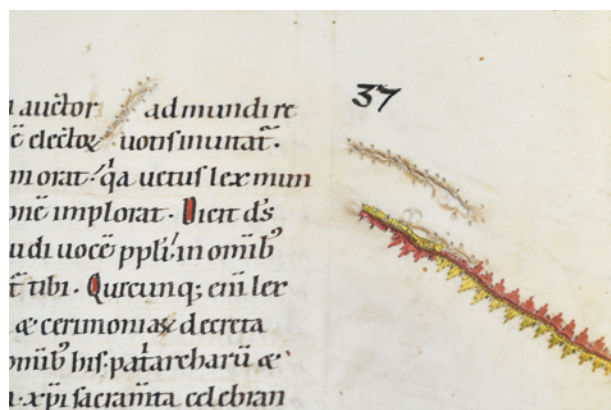 auctor ad mundi re
37
ē electoꝝ uotis inuitat̄.
m orat. q̇a uetus lex mun
onē implorat. Dicit ds̄
udi uocē ppl̄i in omib᷒
t̄ tibi. Quecunq; eni lex
& cerimonias & decreta
omib᷒ his. pat̓archarū &
xp̄i sacram̄ta celebran